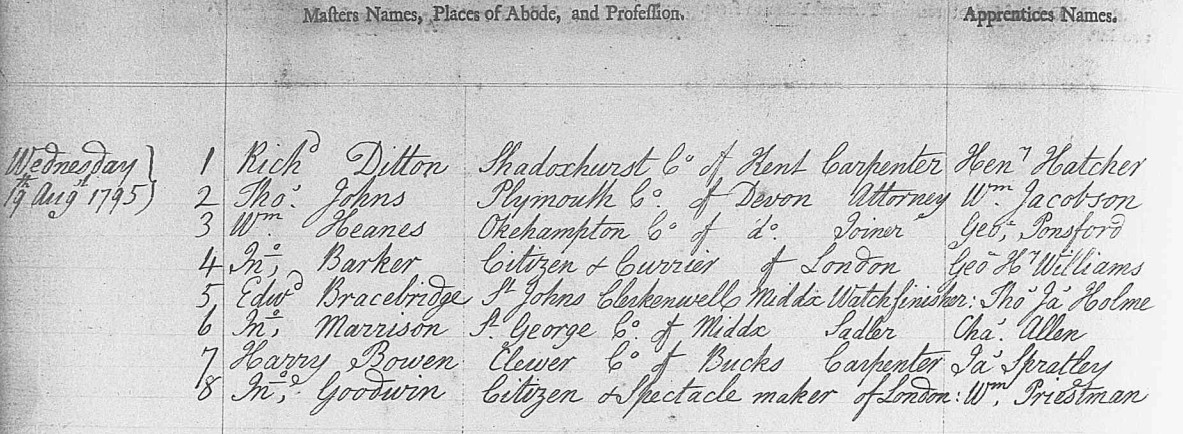 Masters Names, Places of Abode, and Profession. Apprentices Names.
Wednesday } 1 Richd Ditton Shadoxhurst Co of Kent Carpenter Heny Hatcher
19th Augst 1795 } 2 Thos. Johns Plymouth Co. of Devon Attorney Wm Jacobson
3 Wm. Heanes Okehampton Co of do. Joiner Geo. Ponsford
4 Jno. Barker Citizen & Currier of London Geo Hy Williams
5 Edwd Bracebridge St Johns Clerkenwell Middx Watchfinisher: Thos Jas Holme
6 Jno. Marrison St. George Co. of Middx Sadler Chas. Allen
7 Harry Bowen Clewer Co of Bucks Carpenter Jas Spratley
8 Jno. Goodwin Citizen & Spectacle maker of London: Wm. Priestman